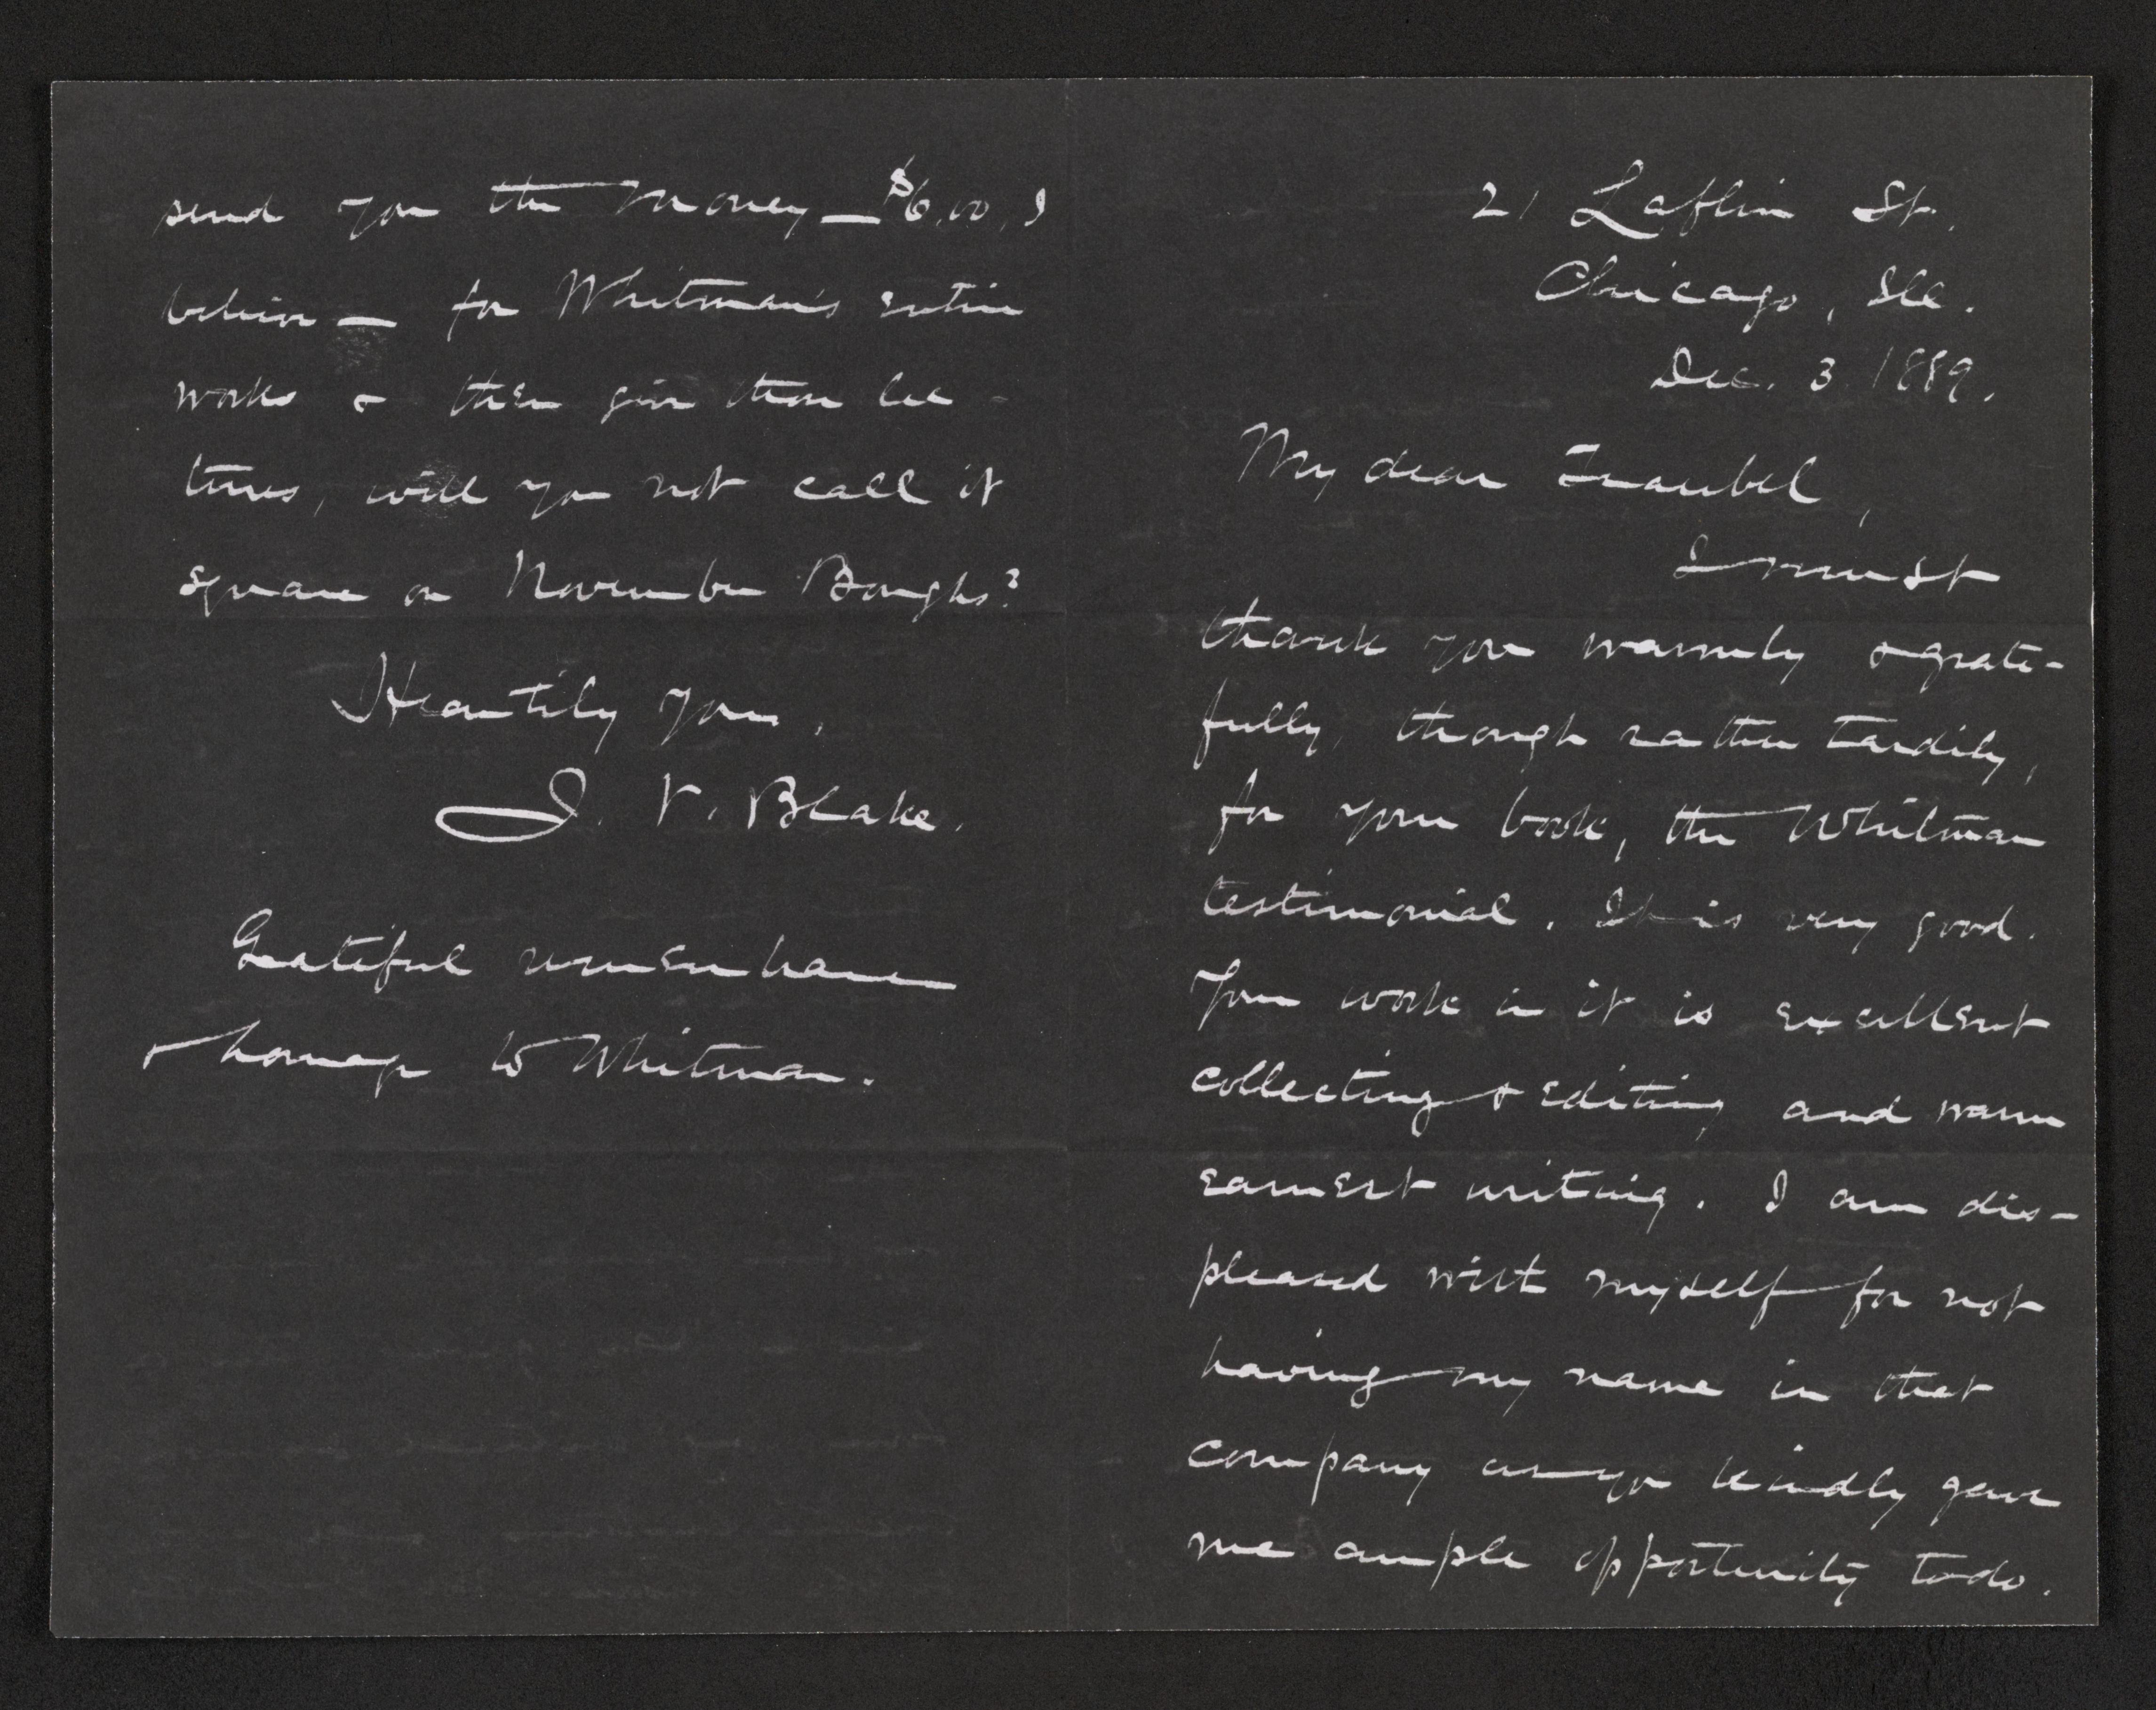 21 Laflin St.
Chicago, Ill.
Dec. 3. 1889.
My dear Traubel,
I must
thank you warmly & grate-
fully, though rather tardily,
for your book, the Whitman
testimonial. It is very good.
Your work in it is excellent
collecting & editing and warm
earnest writing. I am dis-
pleased with myself for not
having my name in that
company as you kindly gave
me ample opportunity to do.
send you the money — $6.00, I
believe — for Whitman's entire
works & then give those lec-
tures, will you not call it
square on November Boughs?
Heartily yours,
J. V. Blake.
Grateful remembrance
& homage to Whitman.